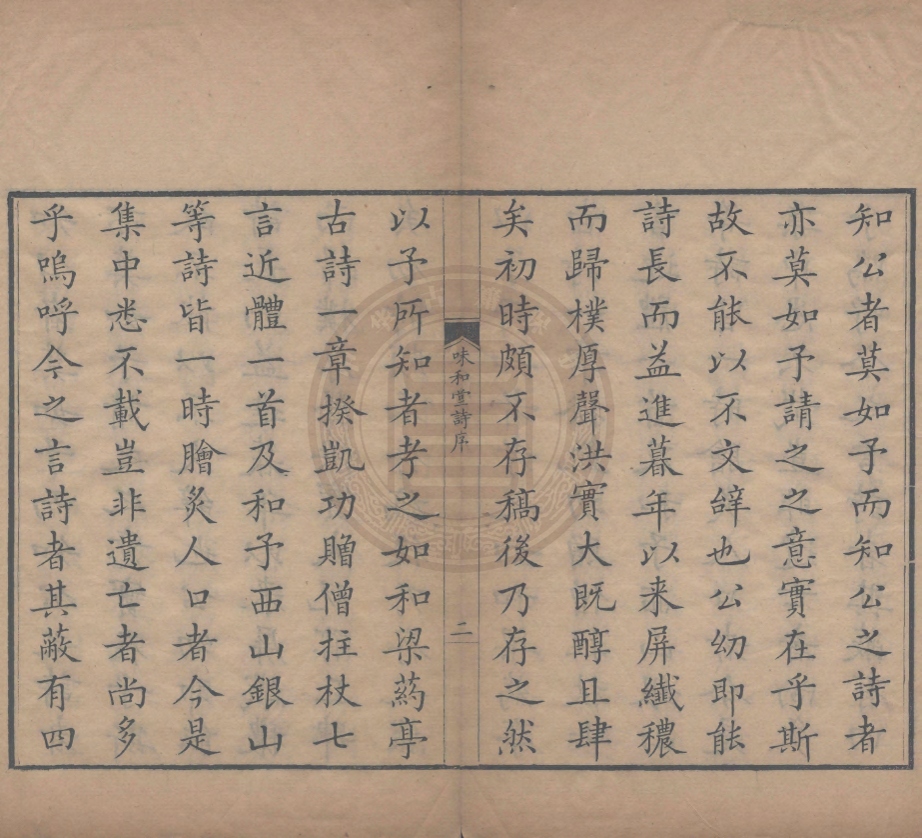 知公者莫如予而知公之詩者
亦莫如予請之之意實在乎斯
故不能以不文辝也公幼即能
詩長而益進暮年以来屏纖穠
而歸樸厚聲洪實大既醇且肆
矣初時頗不存稿後乃存之然
味和堂詩序
二
以予所知者考之如和梁葯亭
古詩一章揆凱功贈僧拄杖七
言近體一首及和予西山銀山
等詩皆一時膾炙人口者今是
集中悉不載豈非遺亡者尚多
乎嗚呼今之言詩者其蔽有四